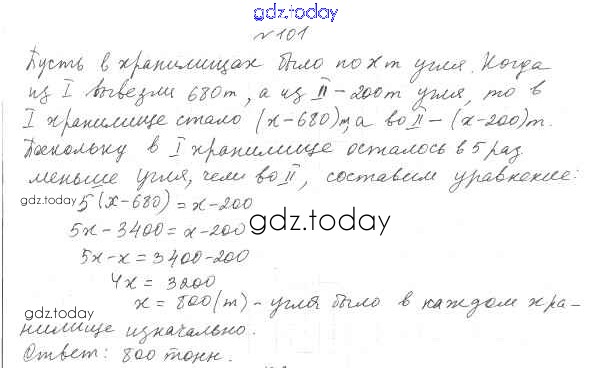 gdz.today
№101
Пусть в хранилищах было по x т угля. Когда
из I вывезли 680т, а из II – 200т угля, то в
I хранилище стало (x-680)т, а во II – (x-200)т.
Поскольку в I хранилище осталось в 5 раз
меньше угля, чем во II, составим уравнение:
gdz.today 5(x-680) = x-200
5x - 3400 = x-200
gdz.today
5x - x = 3400-200
4x = 3200
gdz.today x = 800(т) - угля было в каждом хра-
нилище изначально.
Ответ: 800 тонн.
gdz.today